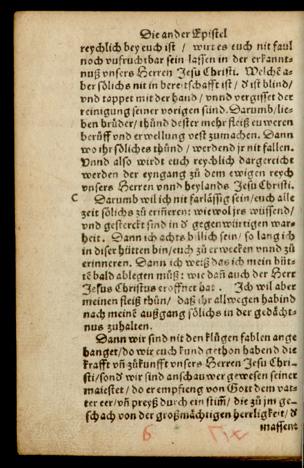 Die ander Epistel
reychlich bey euch ist / wirt es euch nit faul
noch vnfruchtbar sein lassen in der erkannt-
nuß vnsers Herren Jesu Christi. Welchē a-
ber sölichs nit in bereitschafft ist / d̕ ist blind/
vnd tappet mit der hand / vnnd vergisset der
reinigung seiner vorigen sünd. Darumb/lie-
ben brüder/ thünd dester mehr fleiß euweren
berüff vnd erwellung vest zumachen. Dann
wo ihr söliches thünd / werdend jr nit fallen.
Vnnd also wirdt euch reychlich dargereicht
werden der eyngang zu dem ewigen reych
vnsers Herren vnnd heylands Jesu Christi.
C Darumb wil ich nit farlässig sein/euch alle
zeit sölichs zu erinerē: wiewol jrs wüssend/
vnd gesterckt sind in d̕ gegenwürtigen war-
heit. Dann ich achts billich sein/ so lang ich
in diser hütten bin/euch zu erwecken vnnd zu
erinneren. Dann ich weiß das ich mein hüt-
tē bald ablegen müß: wie dañ auch der Herr
Jesus Christus eroffnet hat. Ich wil aber
meinen fleiß thün/ daß ihr allwegen habind
nach meinē außgang sölichs in der gedächt-
nus zuhalten.
Dann wir sind nit den klügen fablen ange
hanget/do wir euch kund gethon habend die
krafft vñ zükunfft vnsers Herren Jesu Chri-
sti/sond̕ wir sind anschauwer gewesen seiner
maiestet / do er empfieng von Gott dem vat-
ter eer/vñ preyß durch ein stim̄/ die zü jm ge-
schach von der großmächtigen herrligkeit/ d̕
massenː
6